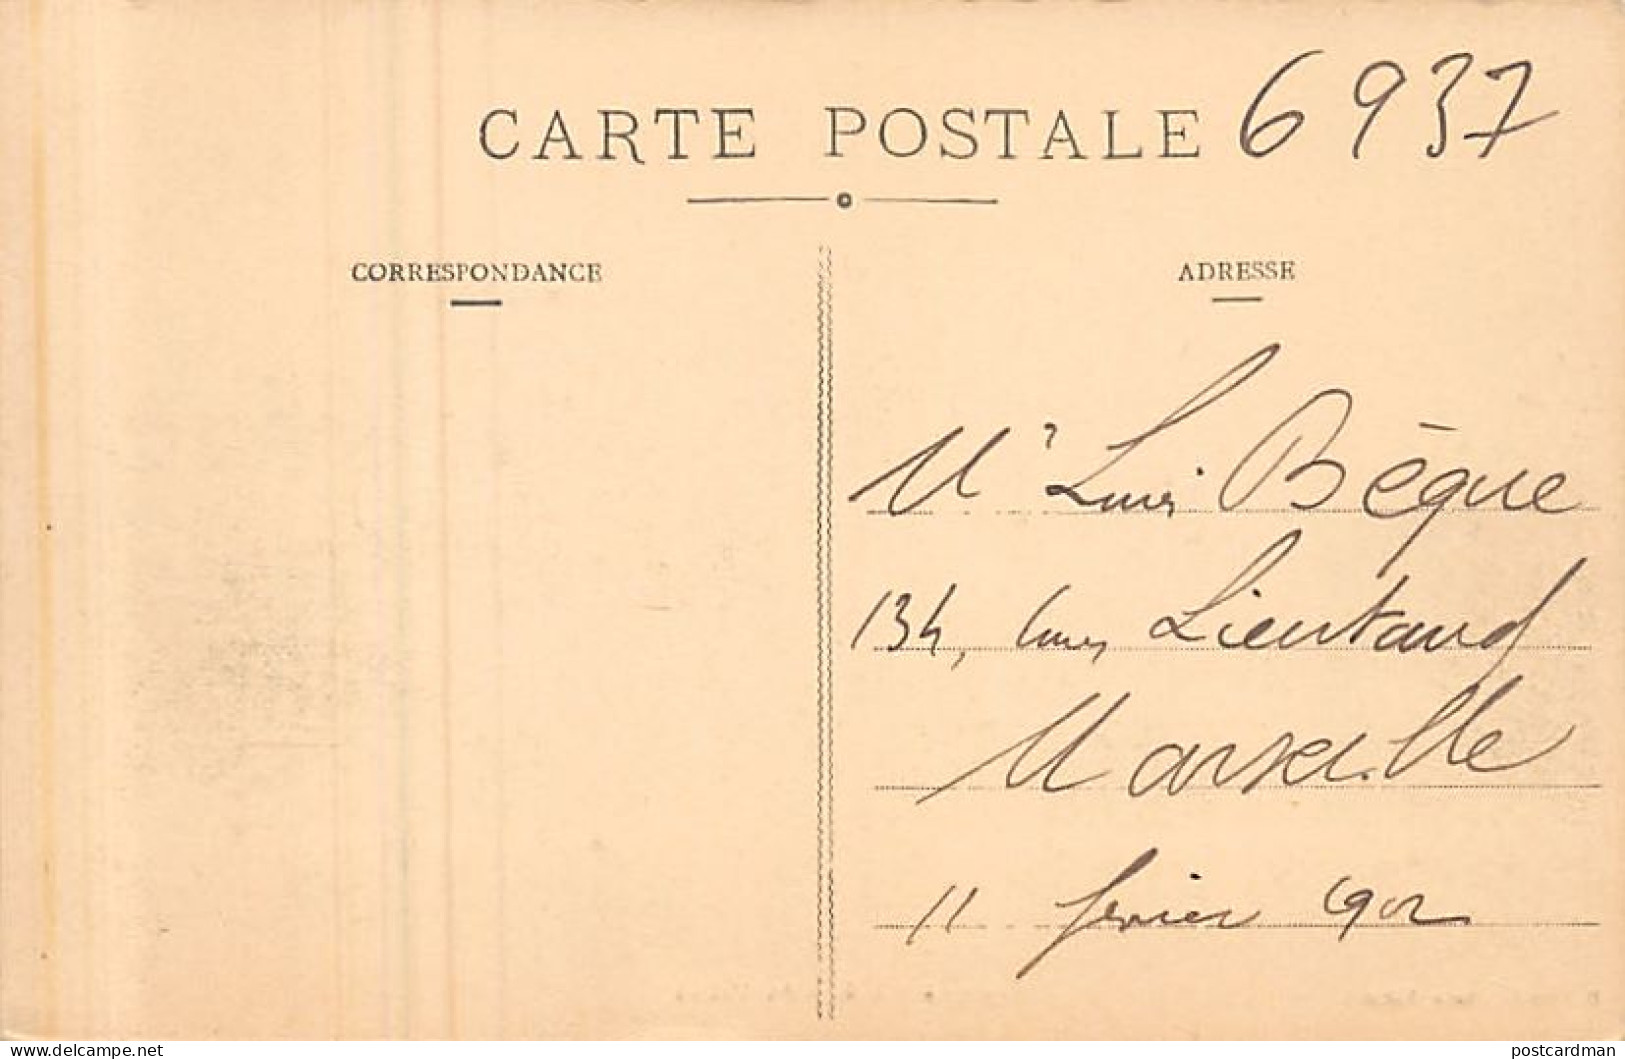 CARTE POSTALE 6937
CORRESPONDANCE
ADRESSE
Mr Louis Bèque
134, Cours Lieutaud
Marseille
11 février 1902
www.delcampe.net
postcardman